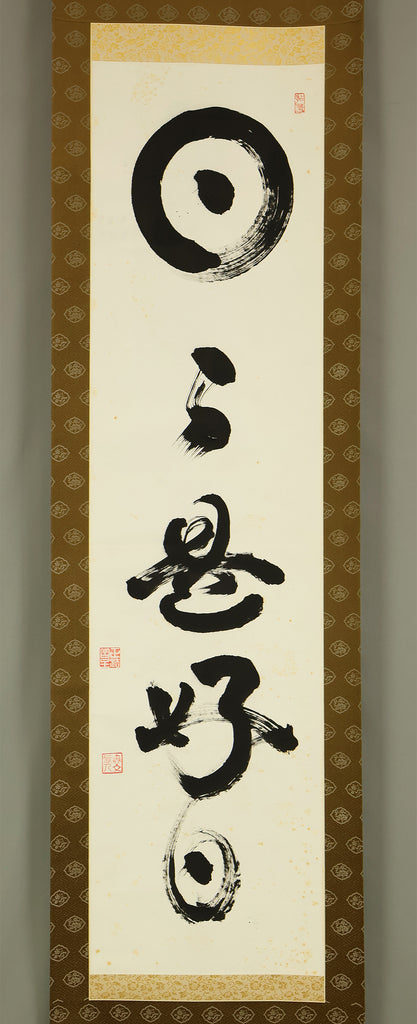 日々是好日